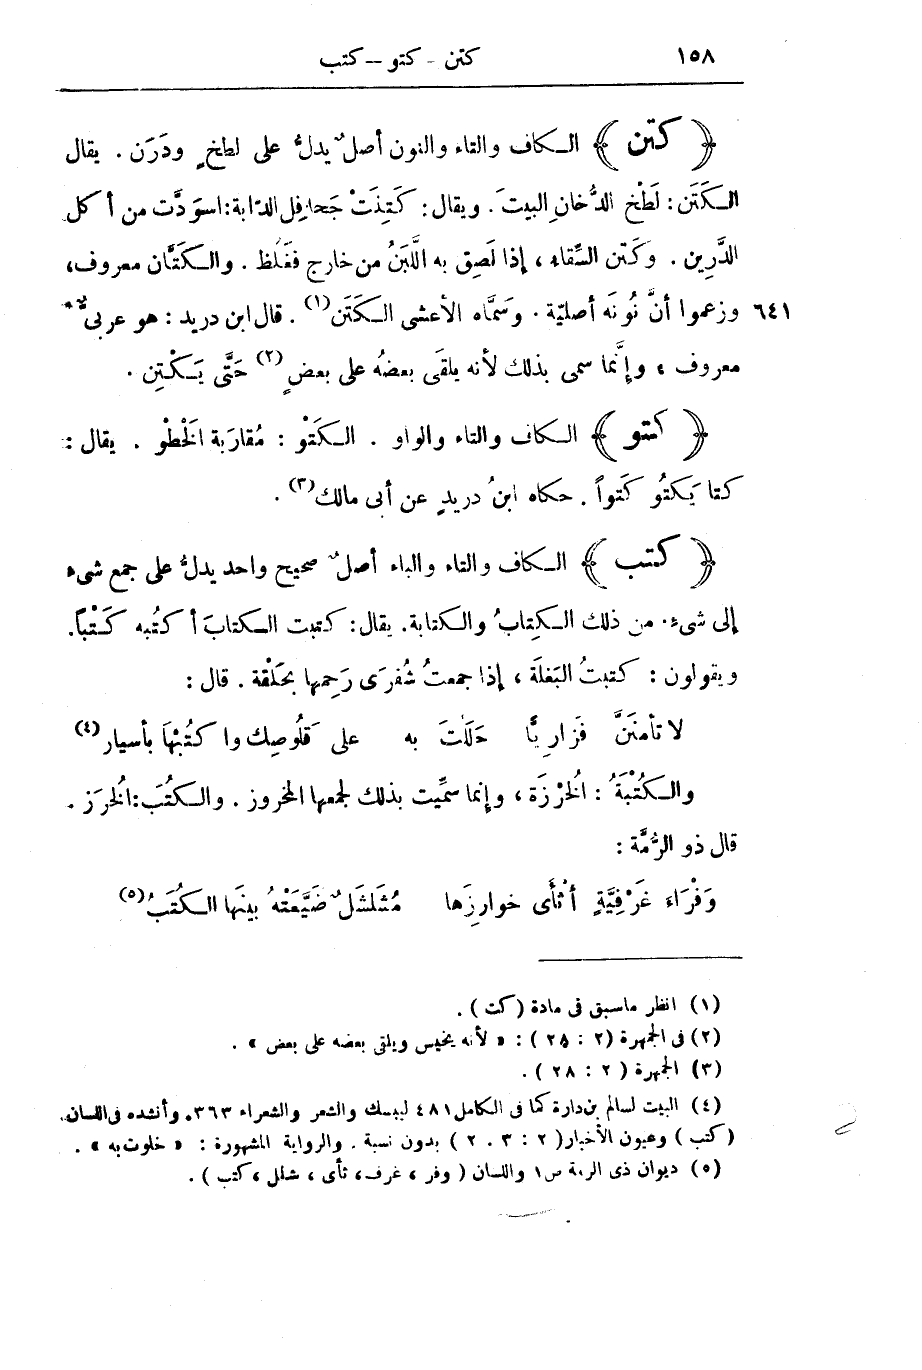 ١٥٨ كتن - كتو - كتب
﴿ كتن ﴾ الكاف والتاء والنون أصلٌ يدلُّ على لطخٍ ودَرَن . يقال
الكَتَن : لَطْخ الدُّخانِ البيتَ . ويقال : كَتِنَتْ جَحافِل الدّابة : اسودَّت من أكل
الدَّرِين . وكَتَن السِّقاء ، إذا لَصِق به اللَّبَنُ من خارج فغَلظ . والكَتَّان معروف،
٦٤١ وزعموا أنَّ نُونَه أصليّة . وسَمَّاه الأعشى الكَتَن (١) . قال ابن دريد : هو عربىٌّ *
معروف ، وإِنَّما سمى بذلك لأنه يلقَى بعضهُ على بعضٍ (٢) حَتَّى يَكْتِن .
﴿ كتو ﴾ الكاف والتاء والواو . الكَتْو : مُقارَبة الخَطْو . يقال :
كتا يَكتُو كَتواً . حكاه ابنُ دريدٍ عن أبى مالك (٣) .
﴿ كتب ﴾ الكاف والتاء والباء أصلٌ صحيح واحد يدلُّ على جمع شىء
إلى شىء . من ذلك الكِتابُ والكتابة . يقال : كتبت الكتابَ أكتُبه كَتْباً .
ويقولون : كتبتُ البَغلَة ، إذا جمعتُ شُفرَى رَحِمها بحَلْقة . قال :
لا تأمنَنَّ فَزاريًّا حَلَلتَ به على قَلُوصِك واكتُبْهَا بأسيار (٤)
والكُتْبَةُ : الخُرْزَة ، وإنما سمِّيت بذلك لجمعها المخروز . والكُتَب : الخُرَز .
قال ذو الرُّمَّة :
وَفْرَاءَ غَرْفِيَّةٍ أثْأَى خوارِزَها مُشَلشَلٌ ضَيَّعَتْهُ بينَها الكُتَبُ (٥)
(١) انظر ماسبق فى مادة ( كت ) .
(٢) فى الجمهرة ( ٢ : ٢٨ ) : « لأنه يخيس ويلقى بعضه على بعض » .
(٣) الجمهرة ( ٢ : ٢٨ ) .
(٤) البيت لسالم بن دارة كما فى الكامل ٤٨١ ليبسك والشعر والشعراء ٣٦٣ . وأنشده فى اللسان
( كتب ) وعيون الأخبار ( ٢ : ٢٠٣ ) بدون نسبة . والرواية المشهورة : « خلوت به » .
(٥) ديوان ذى الرمة ص ١ واللسان ( وفر ، غرف ، ثأى ، شلل ، كتب ) .